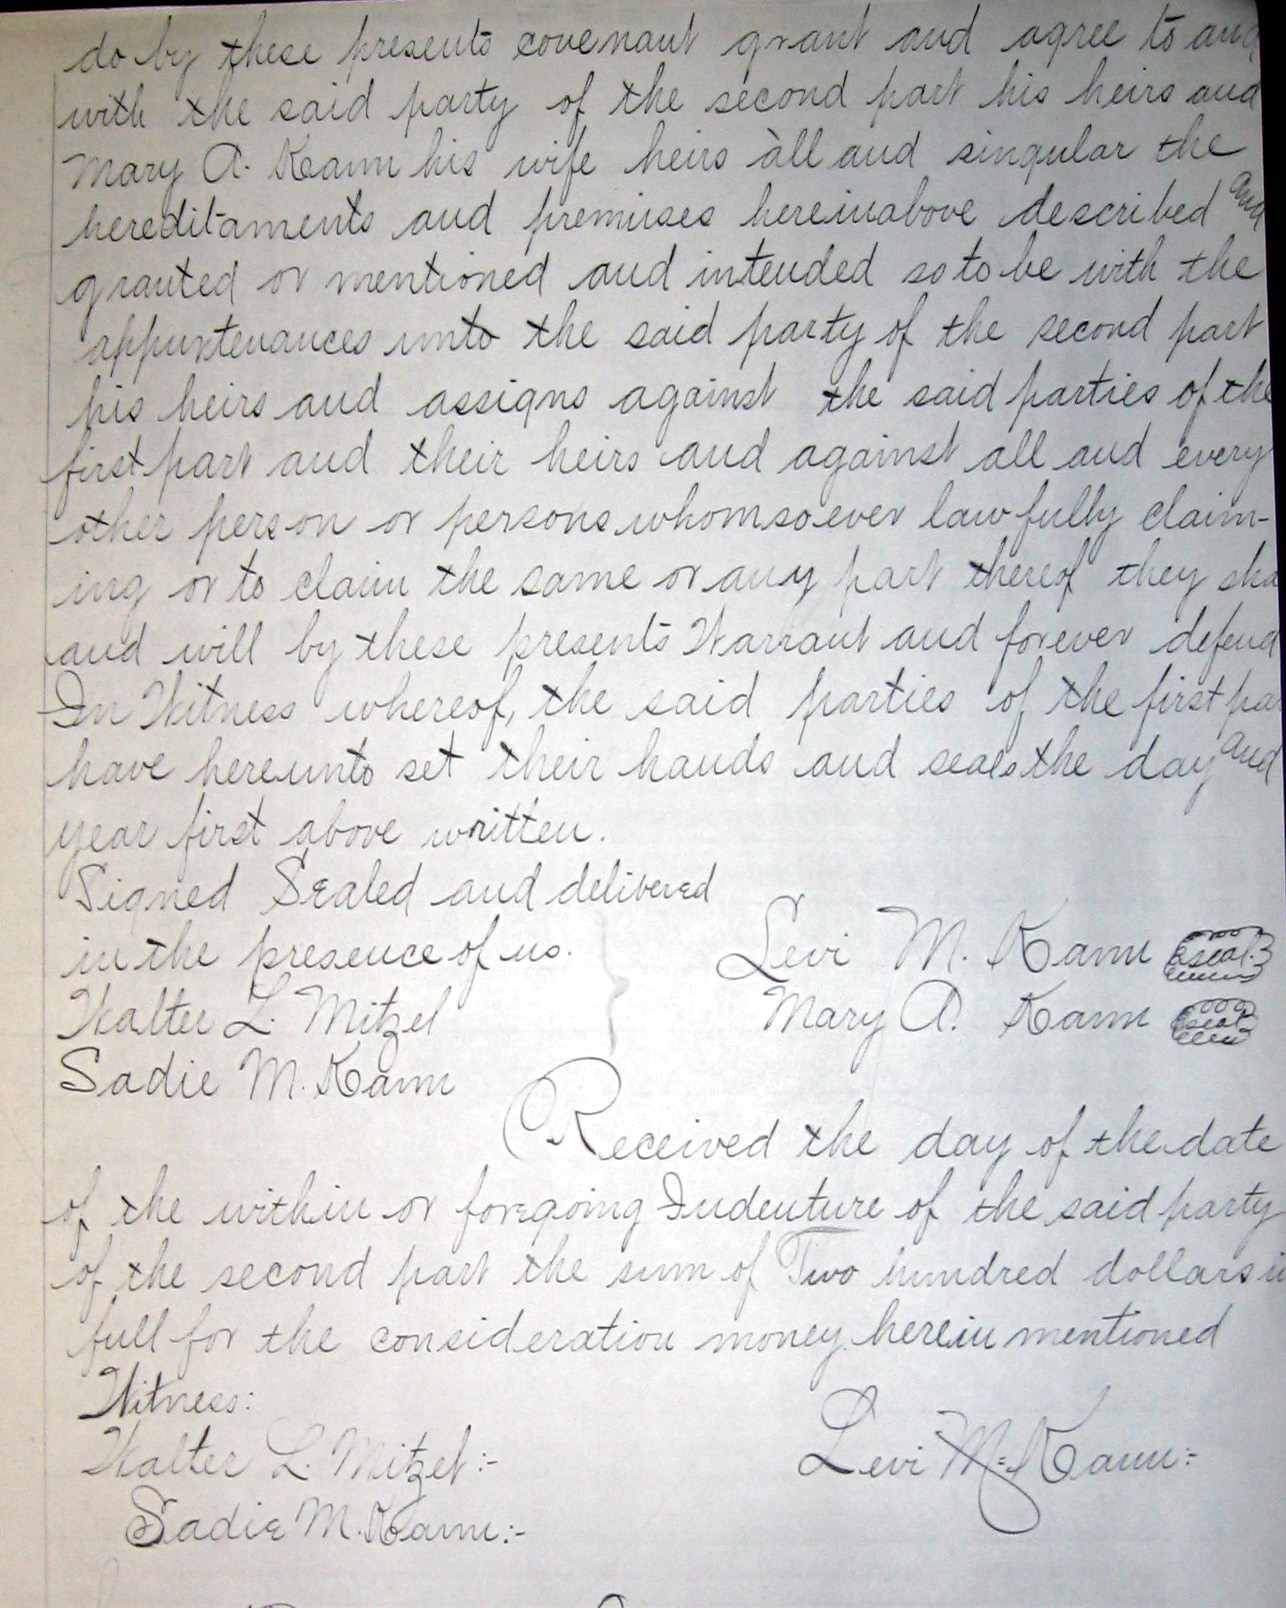 do by these presents covenant grant and agree to and
with the said party of the second part his heirs and
Mary A. Kann his wife heirs all and singular the
hereditaments and premises hereinabove described and
granted or mentioned and intended so to be with the
appurtenances unto the said party of the second part
his heirs and assigns against the said parties of the
first part and their heirs and against all and every
other person or persons whomsoever lawfully claim-
ing or to claim the same or any part thereof they sha
and will by these presents Warrant and forever defend
In Witness whereof, the said parties of the first pa
have hereunto set their hands and seals the day and
year first above written.
Signed Sealed and delivered
in the presence of us.
Levi M. Kann seal.
Walter L. Mitzel
Mary A. Kann seal
Sadie M. Kann
Received the day of the date
of the within or foregoing Indenture of the said party
of the second part the sum of Two hundred dollars i
full for the consideration money herein mentioned
Witness:
Walter L. Mitzel:-
Levi M. Kann:-
Sadie M. Kann:-